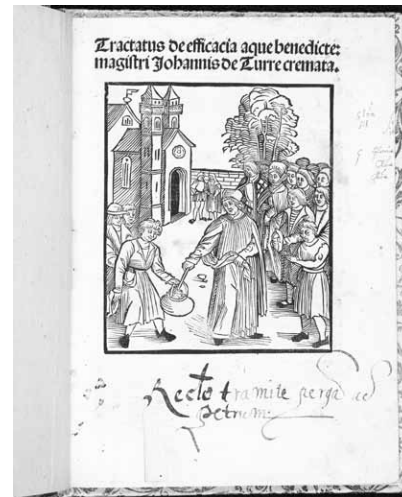 Tractatus de efficacia aque benedicte:
magistri Johannis de Turre cremata.
Recto tramite perga
petrum